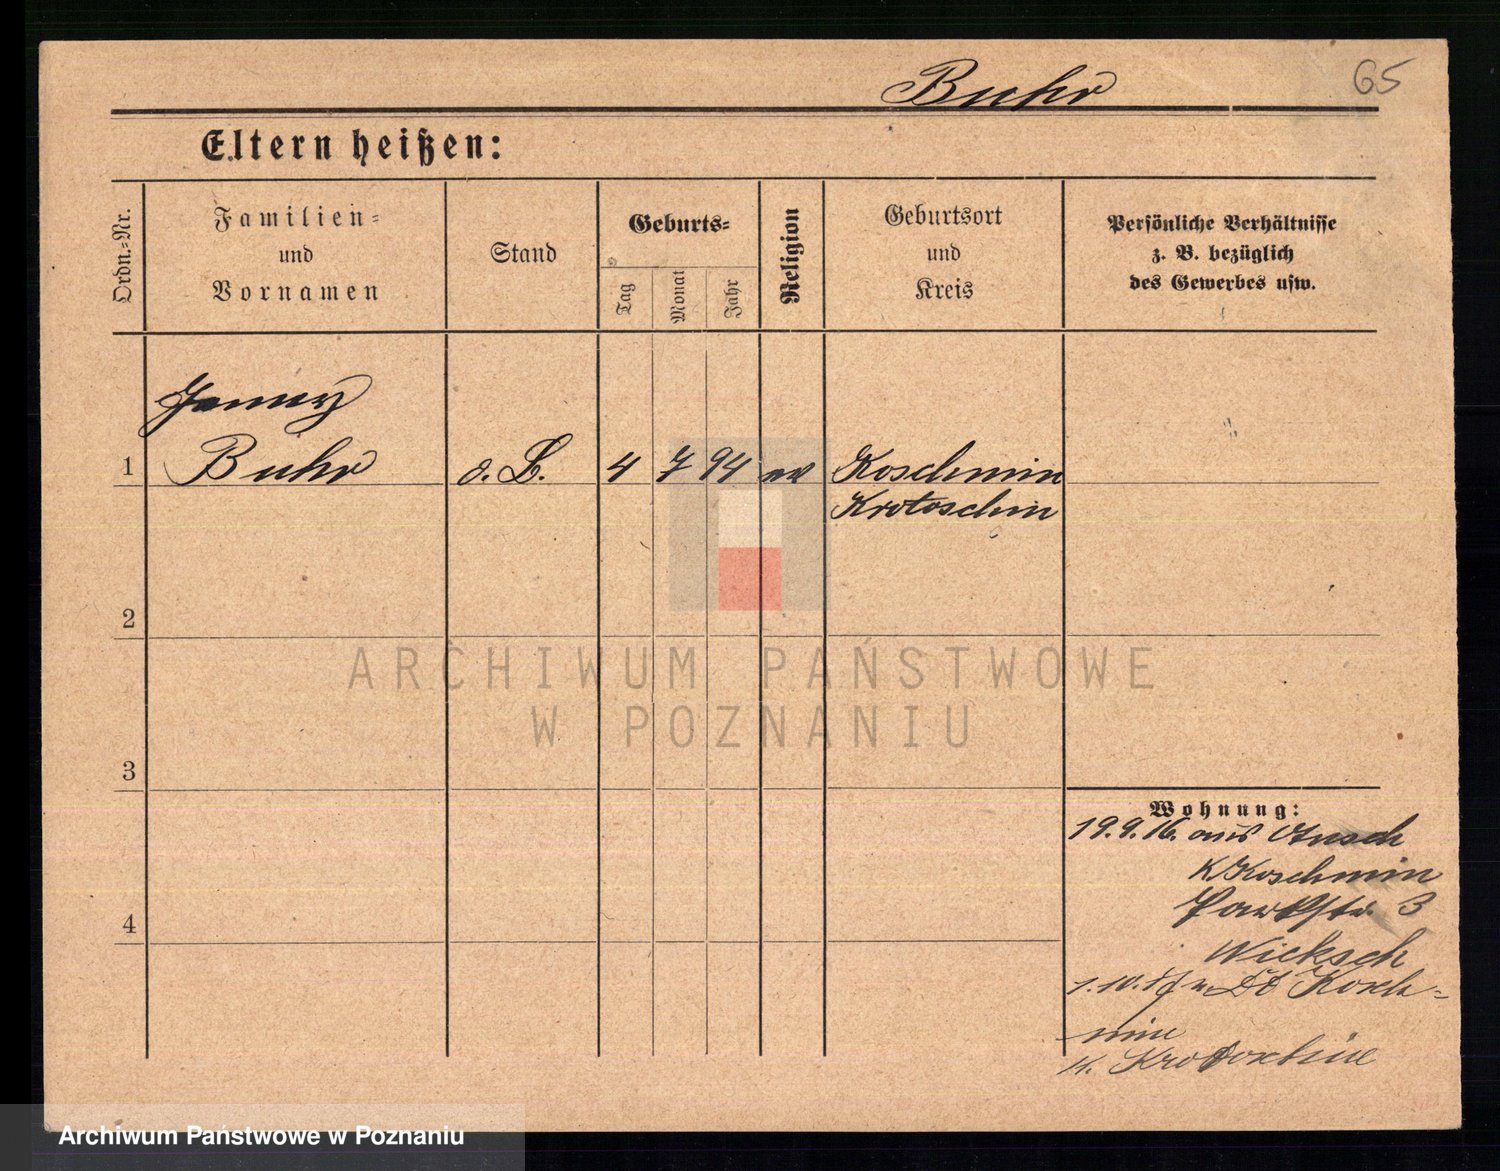 Buhr
65
Eltern heißen:
Ordn.-Nr.
Familien-
und
Vornamen
Stand
Geburts-
Tag
Monat
Jahr
Religion
Geburtsort
und
Kreis
Persönliche Verhältnisse
z. B. bezüglich
des Gewerbes usw.
Jenny
1 Buhr o. B. 4 7 94 ev Koschmin
Krotoschin
2
ARCHIWUM PAŃSTWOWE
W POZNANIU
3
Wohnung:
19.9.16. aus
K Koschmin
Parkstr. 3
Wicksch
1.10.17 n. Kosch-
min
K. Krotoschin
4
Archiwum Państwowe w Poznaniu